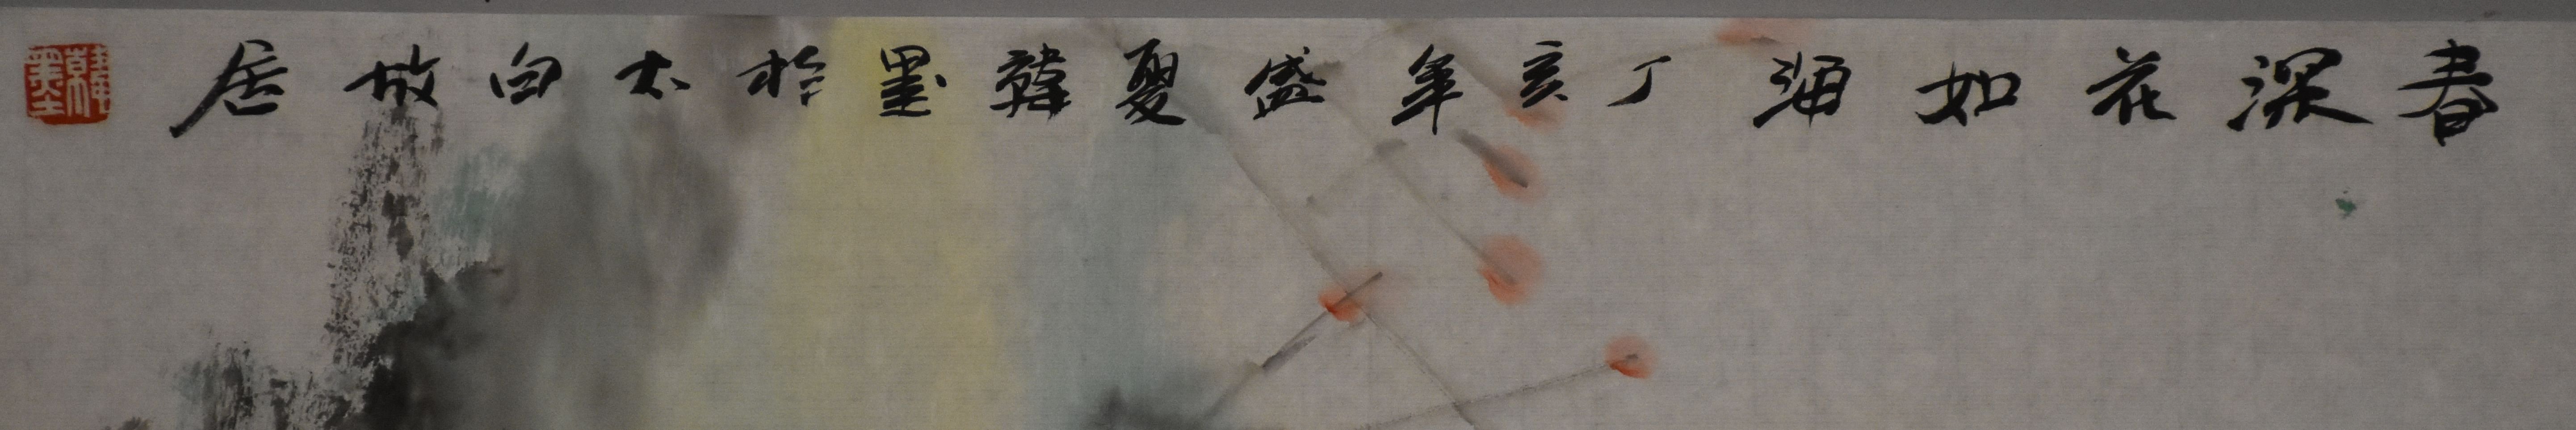 春深花如海丁亥年盛夏韓墨於太白故居
韓墨